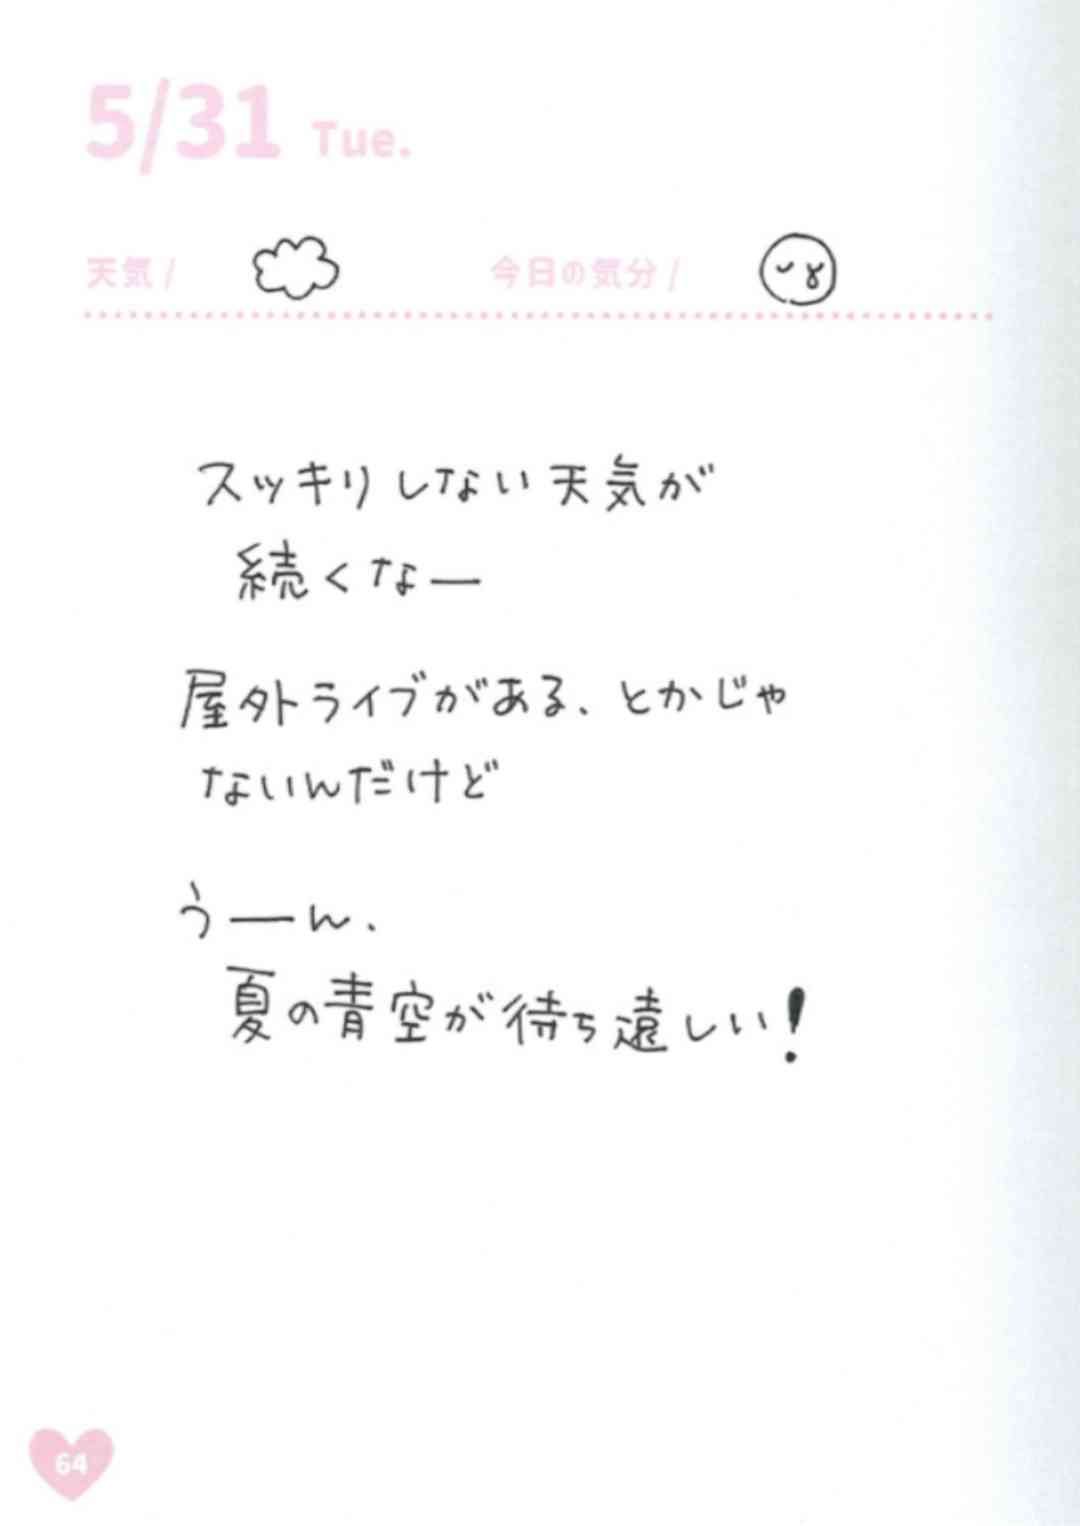 5/31 Tue.
天気 / 今日の気分 /
スッキリしない天気が
続くなー
屋外ライブがある、とかじゃ
ないんだけど
うーん、
夏の青空が待ち遠しい!
64